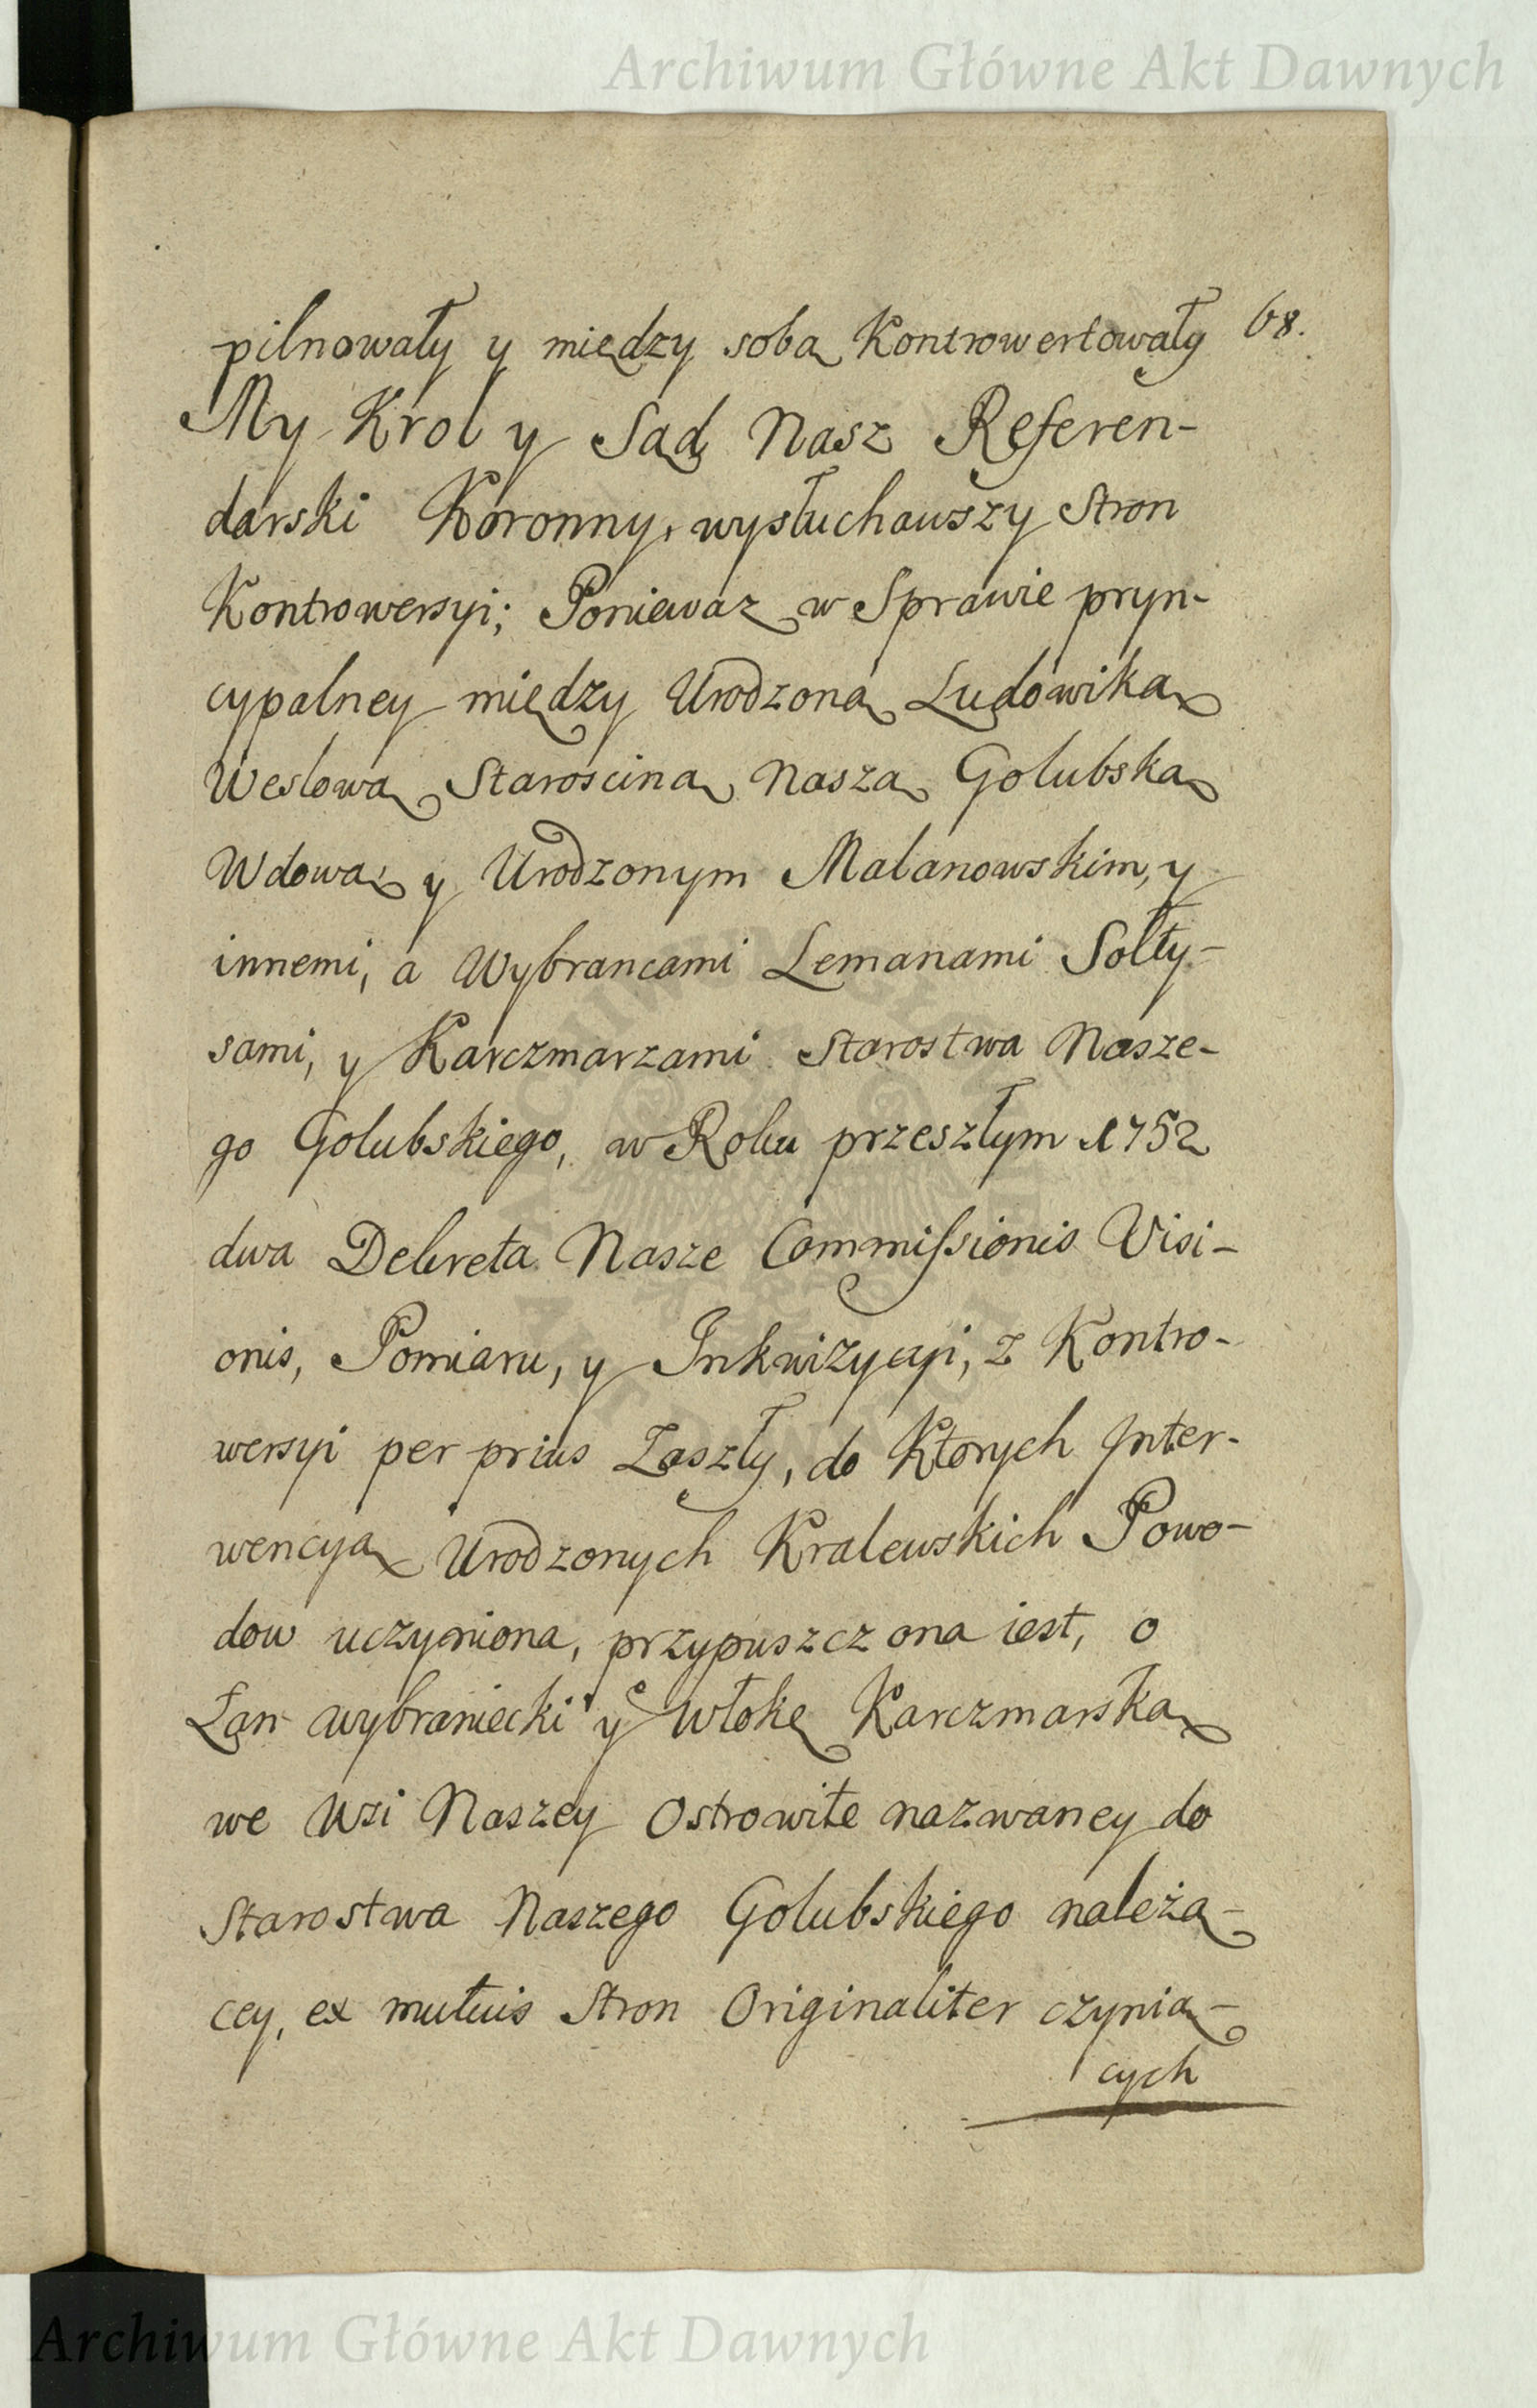 Archiwum Główne Akt Dawnych
pilnowały y między sobą Kontrowertowały 68.
My Krol y Sąd Nasz Referen-
darski Koronny, wysłuchawszy Stron
Kontrowersyi; Ponieważ w Sprawie pryn-
cypalney między Urodzoną Ludowiką
Weslową Starosciną Naszą Golubską
Wdową y Urodzonym Malanowskim, y
innemi, a Wybrancami Lemanami Sołty-
sami, y Karczmarzami Starostwa Nasze-
go Golubskiego, w Roku przeszłym 1752
dwa Dekreta Nasze Commissionis Visi-
onis, Pomiaru, y Inkwizycyi, z Kontro-
wersyi per prius Zaszły, do Ktorych Inter-
wencya Urodzonych Kralewskich Powo-
dow uczyniona, przypuszczona iest, o
Łan wybraniecki y Włokę Karczmarską
we Wsi Naszey Ostrowite nazwaney do
Starostwa Naszego Golubskiego należą-
cey, ex mutuis Stron Originaliter czynią-
cych
Archiwum Główne Akt Dawnych